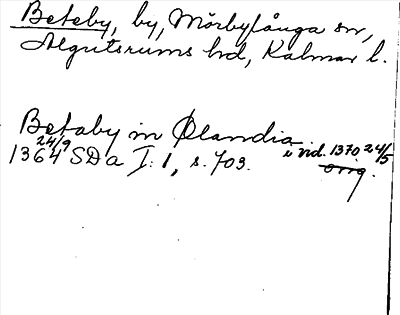 Beteby, by, Mörbylånga sn,
Algutsrums hd, Kalmar l.
Betaby in Ølandia
24/9 1364 SD a I: 1, s. 703. i vid. 1370 24/5
orig.